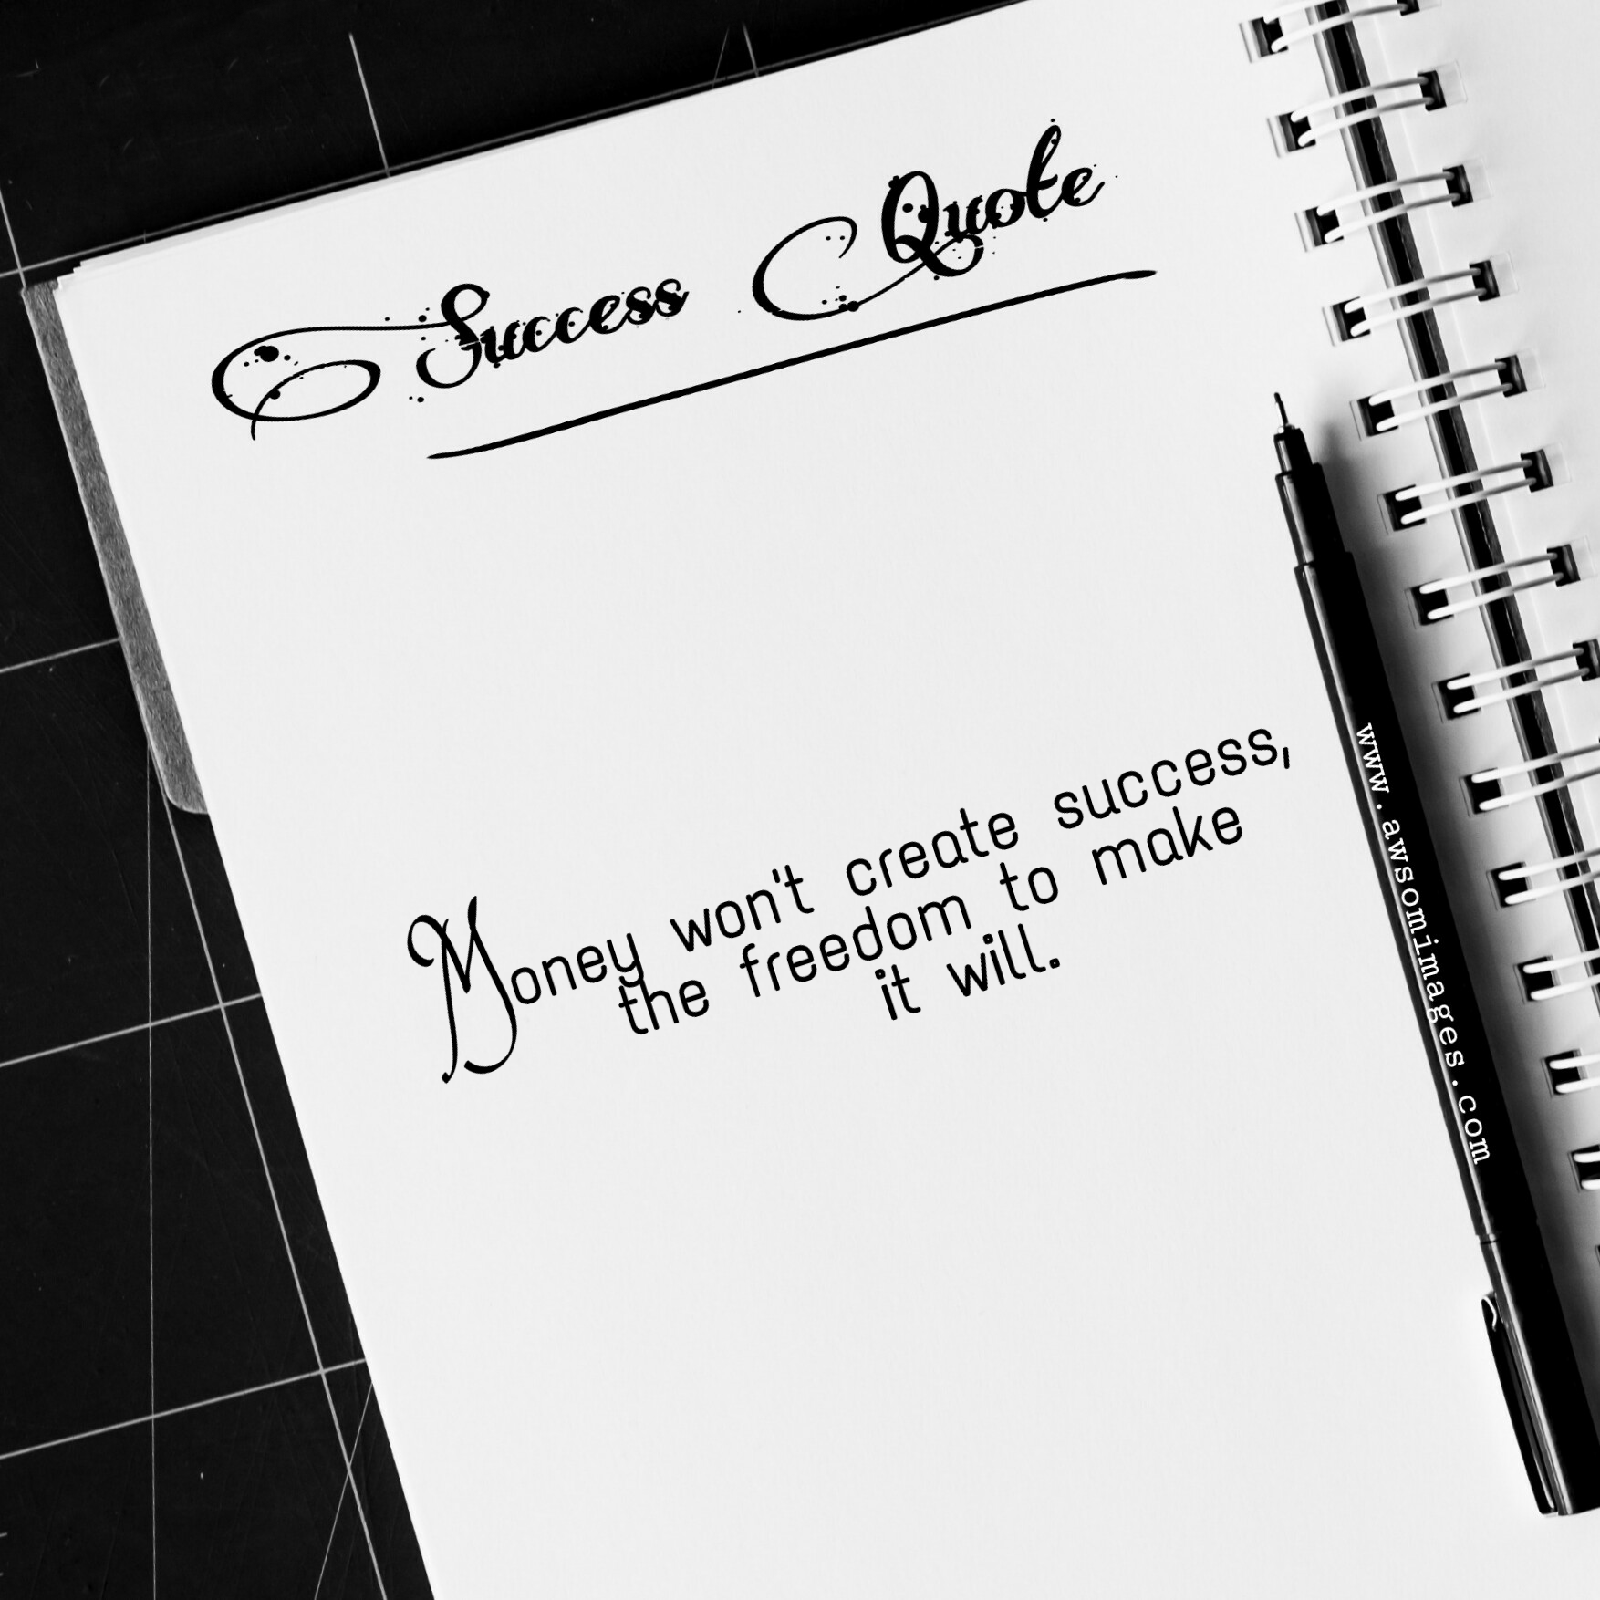 Success Quote
Money won't create success,
the freedom to make
it will.
www.awsomimages.com